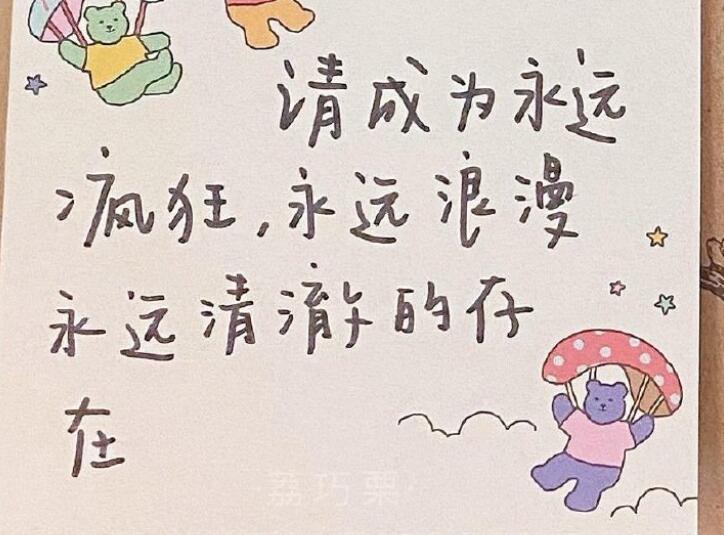 请成为永远
疯狂,永远浪漫
永远清澈的存
在
荔巧栗